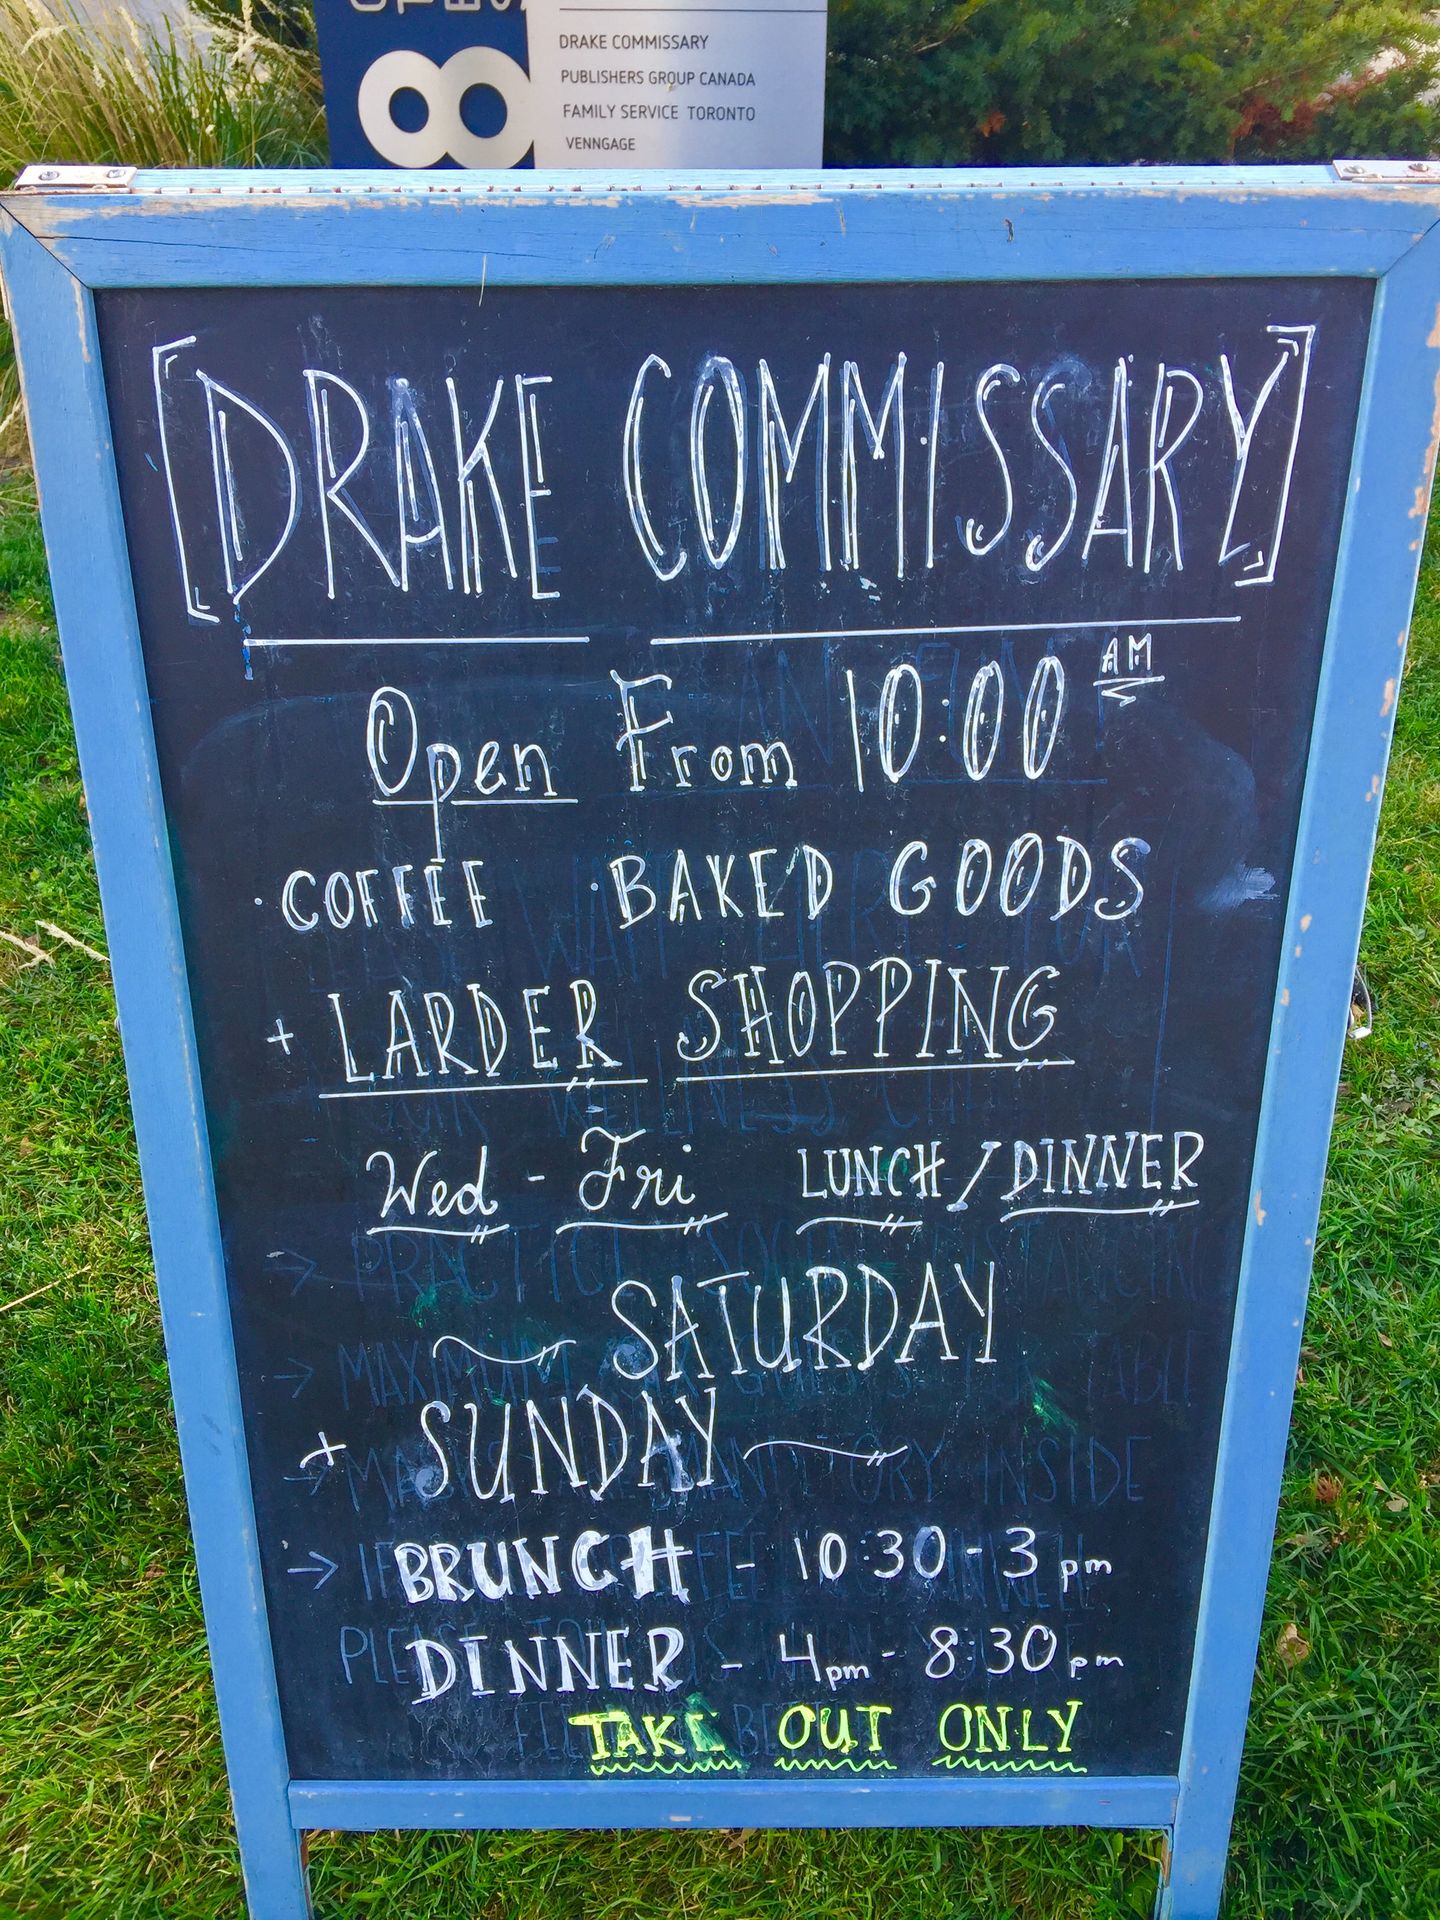 8
DRAKE COMMISSARY
PUBLISHERS GROUP CANADA
FAMILY SERVICE TORONTO
VENNGAGE
[DRAKE COMMISSARY]
Open From 10:00 AM
· COFFEE · BAKED GOODS
+ LARDER SHOPPING
Wed - Fri LUNCH / DINNER
~ SATURDAY
+ SUNDAY ~
→ BRUNCH - 10:30 - 3 pm
DINNER - 4pm - 8:30 pm
TAKE OUT ONLY